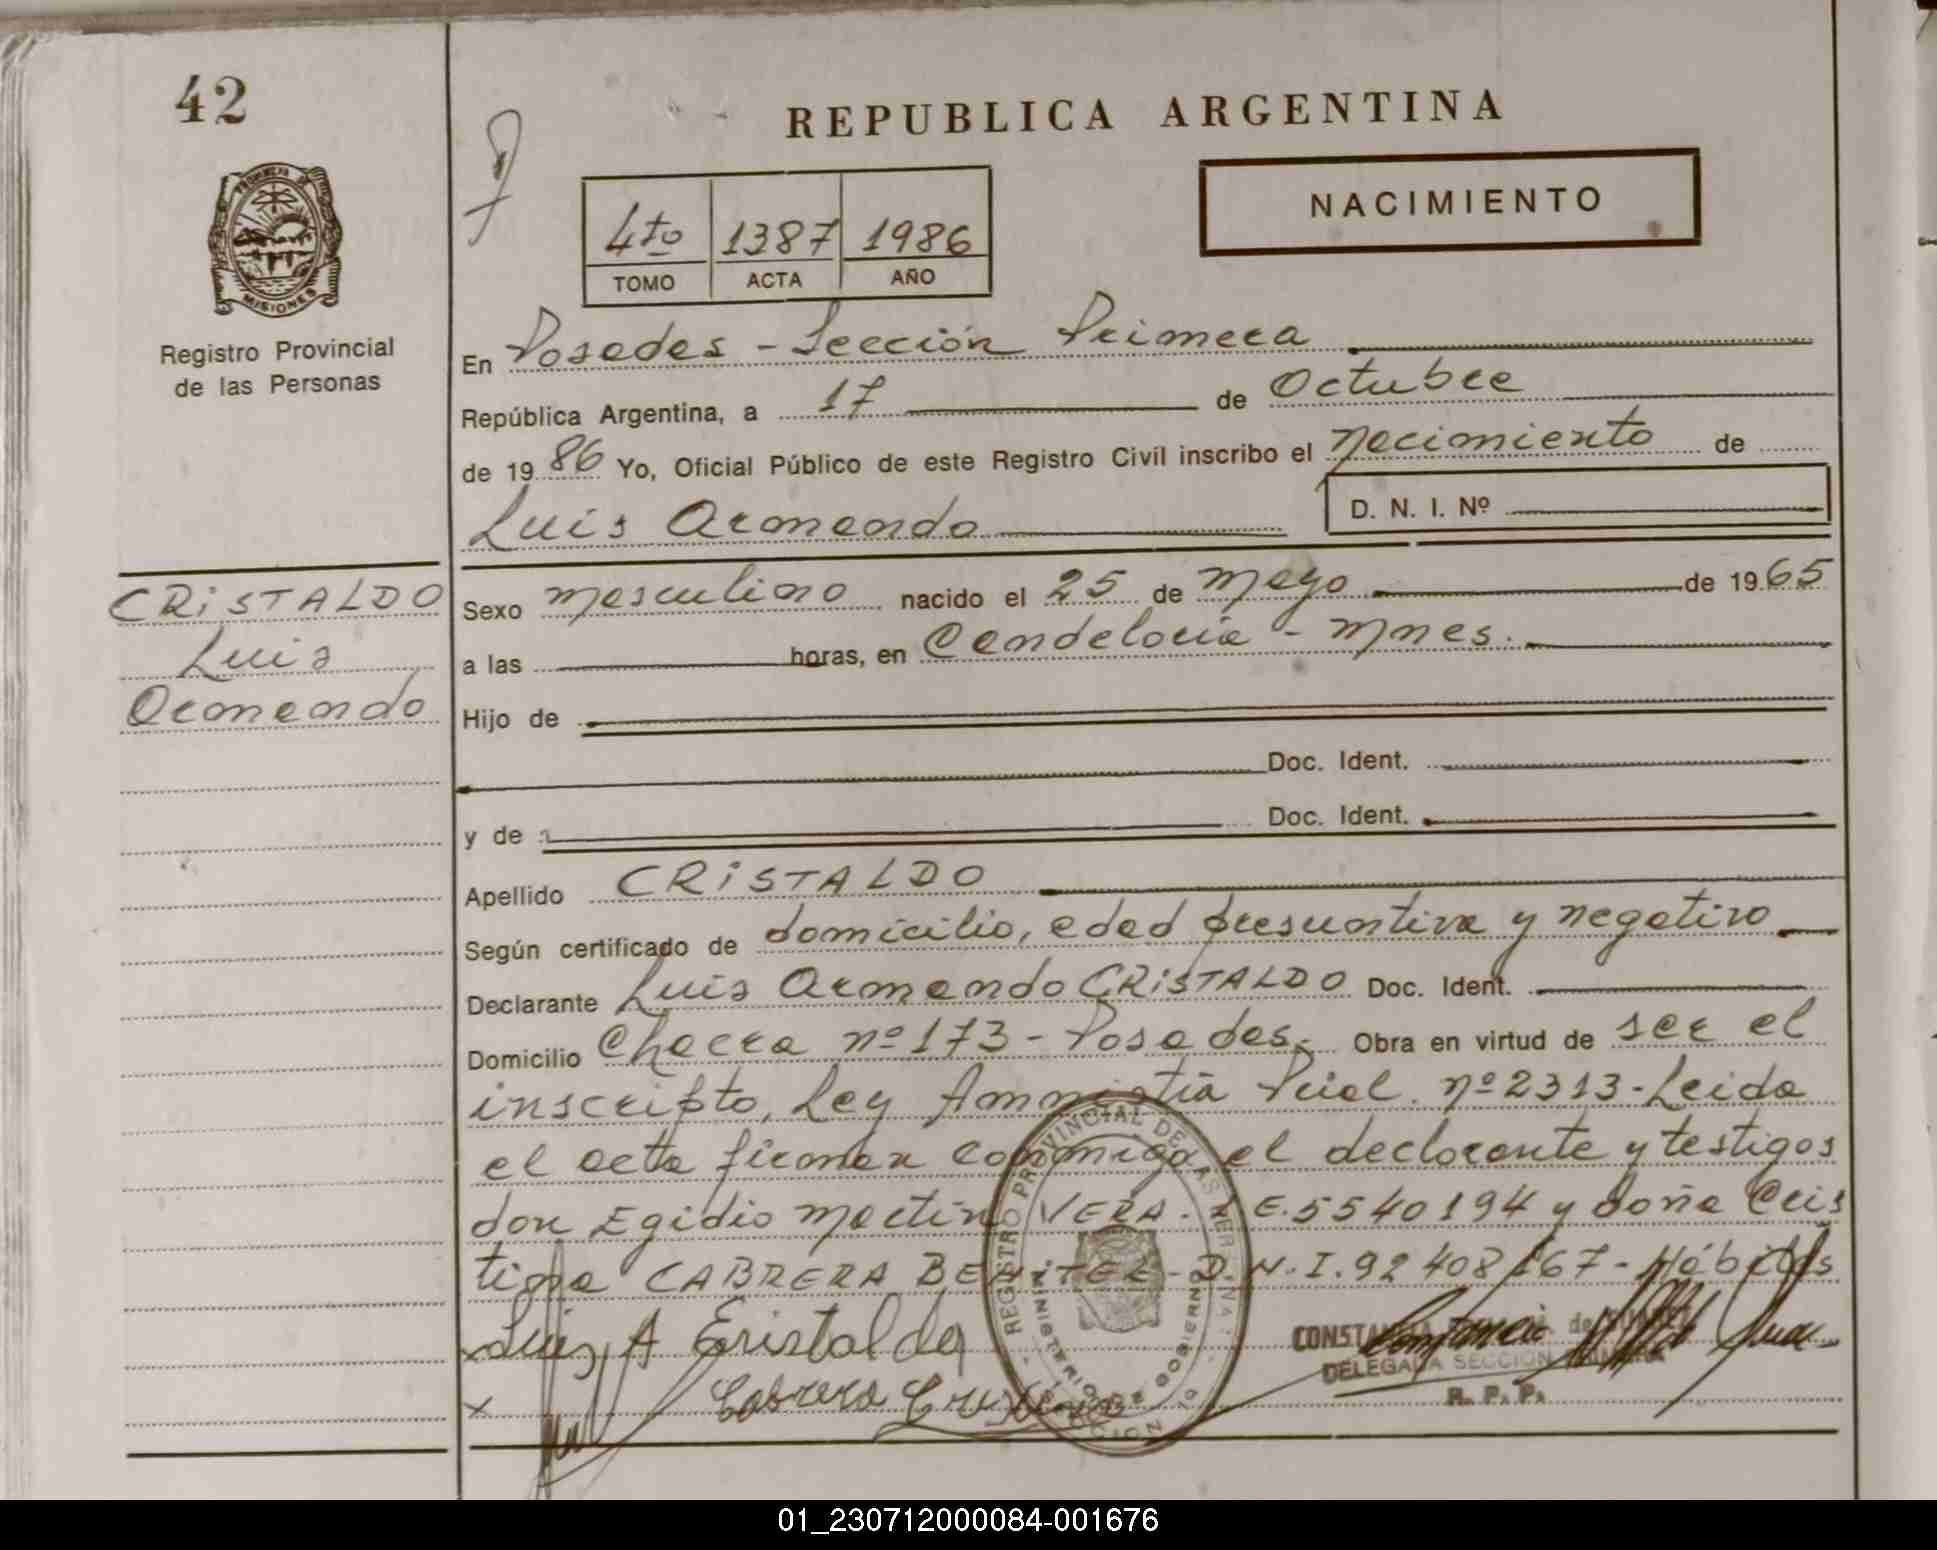 42
REPUBLICA ARGENTINA
NACIMIENTO
4to 1387 1986
TOMO ACTA AÑO
PROVINCIA DE MISIONES
Registro Provincial
de las Personas
En Posadas - Sección Primera
República Argentina, a 17 de Octubre
de 19 86 Yo, Oficial Público de este Registro Civil inscribo el nacimiento de
Luis Armando
D. N. I. Nº
CRISTALDO
Luis
Armando
Sexo masculino nacido el 25 de mayo de 19 65
a las horas, en Candelaria - Mnes.
Hijo de
Doc. Ident.
y de Doc. Ident.
Apellido CRISTALDO
Según certificado de domicilio, edad presuntiva y negativo
Declarante Luis Armando CRISTALDO Doc. Ident.
Domicilio Chacra nº 173 - Posadas. Obra en virtud de ser el
inscripto, Ley Amnistía Pcial. nº 2313 - Leida
el acta firman conmigo el declarante y testigos
don Egidio Martin VERA - L.E. 5540194 y doña Cris
tina CABRERA BENITEZ - D.N.I. 92408 67 - Hábiles
x Luis A Cristaldo
x Cabrera Cristina
REGISTRO PROVINCIAL DE LAS PERSONAS
MINISTERIO DE GOBIERNO
SECCION 1a
CONSTANCIA de
DELEGADA SECCION PRIMERA
R. P. P.
01_230712000084-001676